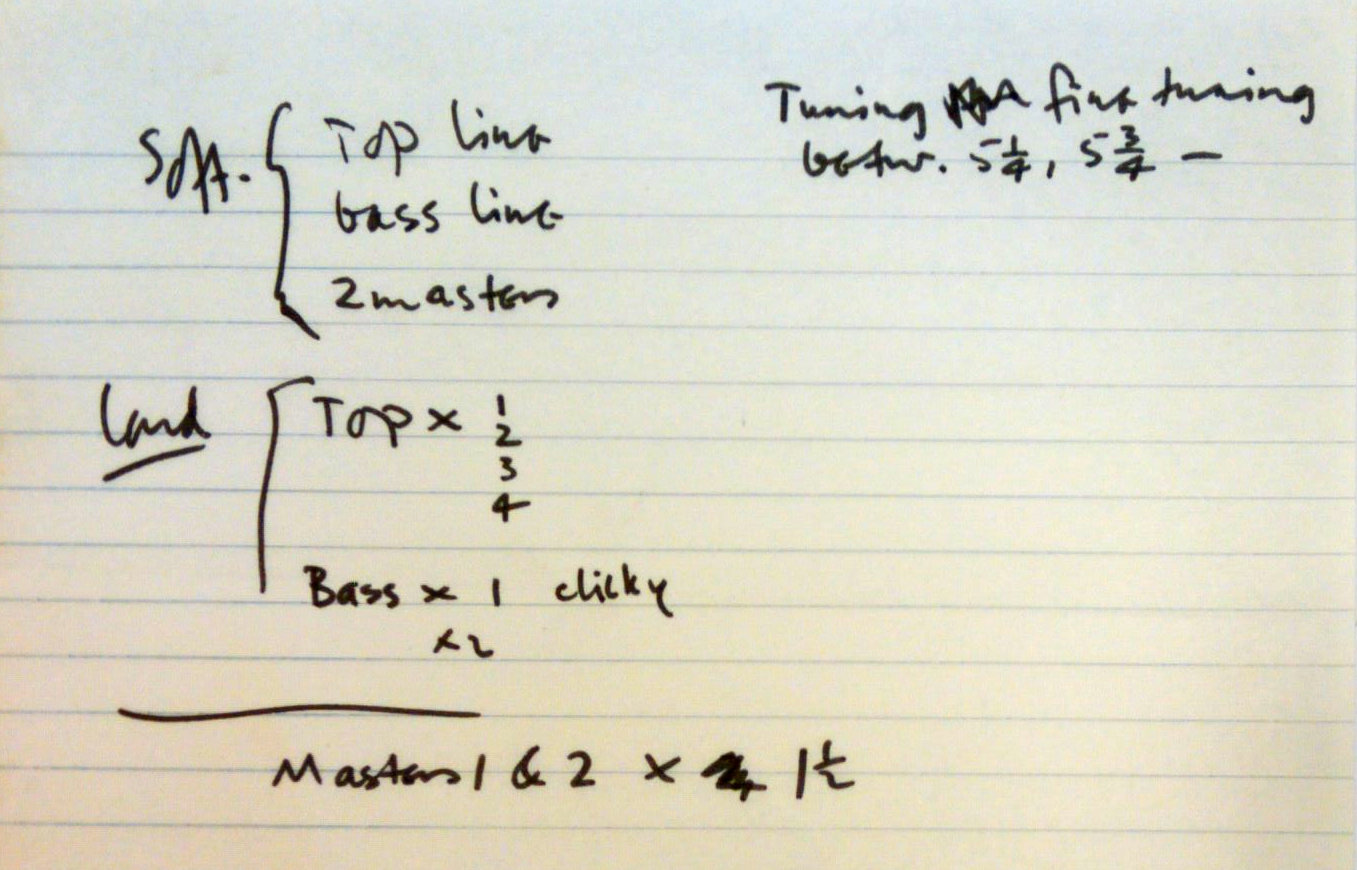 Tuning fine tuning
betw. 5¼, 5¾ —
Soft.
Top line
bass line
2 masters
Loud
Top x 1
2
3
4
Bass x 1 clicky
x2
Masters 1 & 2 x 1½